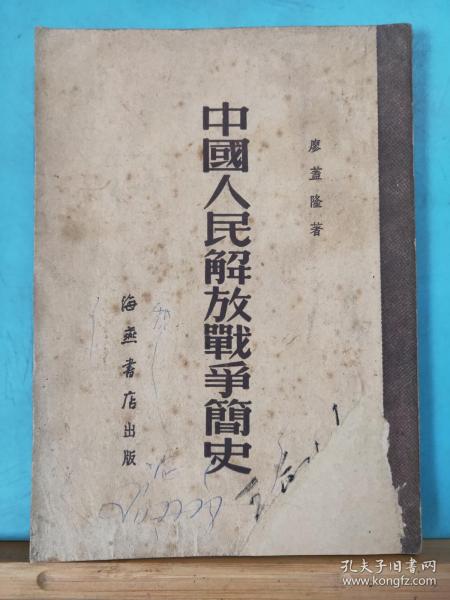 廖蓋隆著
中國人民解放戰爭簡史
海燕書店出版
孔夫子旧书网
www.kongfz.com